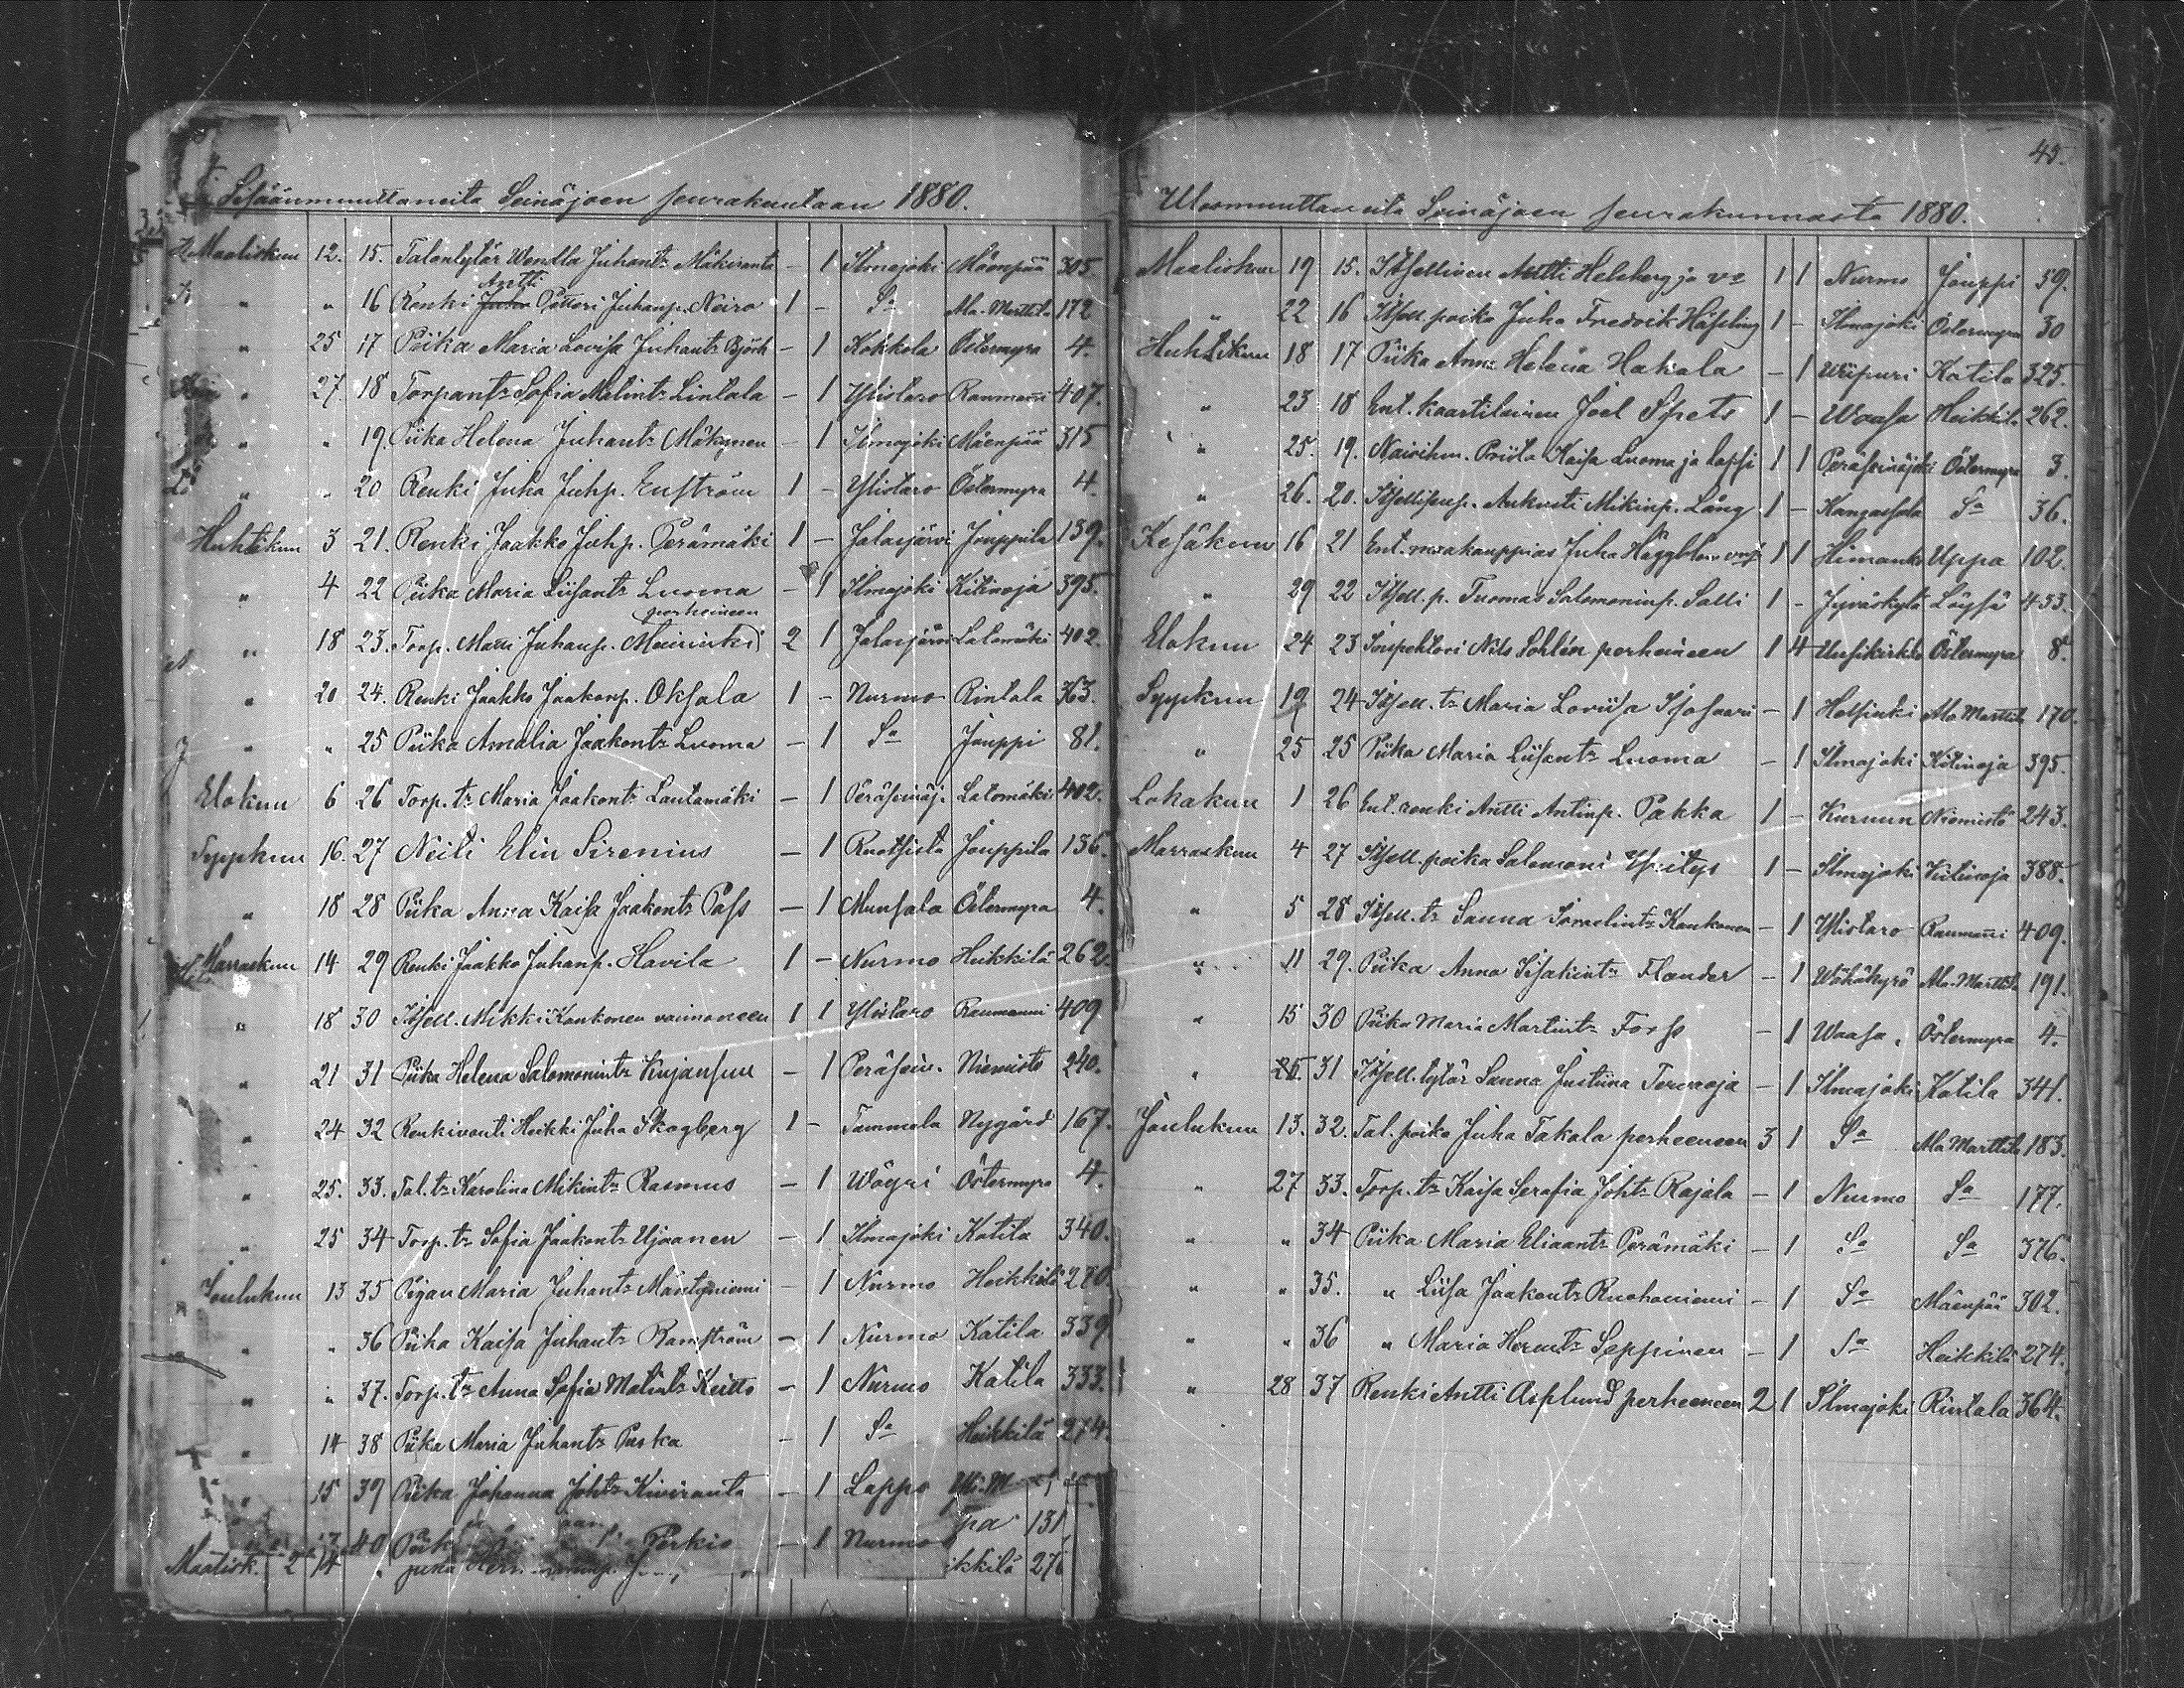 Sisäänmuuttaneita Seinäjoen seurakuntaan 1880.
Maaliskuu 12. 15. Talontytär Wendla Juhant: Mäkiranta - 1 Ilmajoki Mäenpää 305.
Antti
" " 16 Renki Juha Petteri Juhanp. Neiro 1 - Sa Ala-Marttila 172
" 25 17 Piika Maria Lovisa Juhant: Björk - 1 Kokkola Östermyra 4.
" 27. 18 Torpant: Sofia Matint: Lintala - 1 Ylistaro Raumanni 407.
" " 19. Piika Helena Juhant: Mäkynen - 1 Ilmajoki Mäenpää 315
" " 20 Renki Juha Juhp. Enström 1 - Ylistaro Östermyra 4.
Huhtikuu 3 21. Renki Jaakko Juhp. Perämäki 1 - Jalasjärvi Jouppila 139.
" 4 22 Piika Maria Liisant: Luoma - 1 Ilmajoki Kitinoja 395.
perheineen
" 18 23. Torp. Matti Juhanp. 2 1 Jalasjärvi Latomäki 402.
" 20 24. Renki Jaakko Jaakonp. Oksala 1 - Nurmo Rintala 363.
" " 25 Piika Amalia Jaakont: Luoma - 1 Sa Jouppi 81.
Elokuu 6 26 Torp. t: Maria Jaakont: Lautamäki - 1 Peräseinäj. Latomäki 402.
Syyskuu 16. 27 Neiti Elin Sirenius - 1 Ruotsista Jouppila 136.
" 18 28 Piika Anna Kaisa Jaakont: Pass - 1 Munsala Östermyra 4.
Marraskuu 14 29 Renki Jaakko Juhanp. Havila 1 - Nurmo Heikkilä 262.
" 18 30 Itsell. Mikki Kankonen vaimoneen 1 1 Ylistaro Raumanni 409
" 21 31 Piika Helena Salomonint: Kujansuu - 1 Peräsein. Niemistö 240.
" 24 32 Renkivouti Heikki Juha Skogberg 1 - Tammela Nygård 167.
" 25. 33. Tal. t: Karolina Mikint: Rasmus - 1 Wöyri Östermyra 4.
" 25 34 Torp. t: Sofia Jaakont: Ujainen - 1 Ilmajoki Katila 340.
Joulukuu 13 35 Pigan Maria Juhant: Mäntyniemi - 1 Nurmo Heikkilä 270.
" " 36 Piika Kaisa Juhant: Ramström - 1 Nurmo Katila 339.
" " 37. Torp. t: Anna Sofia Matint: Keitto - 1 Nurmo Katila 333.
" 14 38 Piika Maria Juhant: Paska - 1 Sa Heikkilä 274.
" 15 39 Piika Johanna Joht: Kiviranta - 1 Lappo
40 - 1 Nurmo 131
Maalisk. 2 14 Juha ikkilä 276
45.
Ulosmuuttaneita Seinäjoen seurakunnasta 1880.
Maaliskuu 19 15. Itsellinen Antti Helsberg ja vo 1 1 Nurmo Jouppi 59.
" 22 16 Itsell. poika Juha Fredrik Häseling 1 - Ilmajoki Östermyra 30
Huhtikuu 18 17 Piika Anna Helena Hakala - 1 Wiipuri Katila 325.
" 23 18 Ent. kaartilainen Joel Spets 1 - Waasa Heikkil. 262.
" 25. 19. Naisihm. Priita Kaisa Luoma ja lapsi 1 1 Peräseinäjoki Östermyra 3.
" 26. 20. Aukusti Mikinp. Lång 1 - Kangasala Sa 36.
Kesäkuu 16 21 Ent. maakauppias Juha Häggblom 1 1 Himanka Uppa 102.
" 29 22 Itsell. p. Tuomas Salomoninp. Salli 1 - Jyväskylä Löysä 433.
Elokuu 24 23 Inspehtori Nils Sohlén perheineen 1 4 Uusikirkko Östermyra 8.
Syyskuu 19 24 Itsell. t: Maria Loviisa Isosaari - 1 Helsinki Ala Marttil. 170.
" 25 25 Piika Maria Liisant: Luoma - 1 Ilmajoki Kitinoja 395.
Lokakuu 1 26 Ent. renki Antti Antinp. Pakka 1 - Kuruun Niemistö 243.
Marraskuu 4 27 Itsell. poika Salomoni Yritys 1 - Ilmajoki Kitinoja 388.
" 5 28 Itsell. t: Sanna Kankonen - 1 Ylistaro Raumanni 409.
" 11 29. Piika Anna Iisakint: Flander - 1 Wähäkyrö Ala-Marttil. 191.
" 15 30 Piika Maria Martint: Forss - 1 Waasa. Östermyra 4.
" 26. 31 Itsell. tytär Sanna Justiina - 1 Ilmajoki Katila 341.
Joulukuu 13. 32. Tal. poika Juha Takala perheeneen 3 1 Sa Ala Marttila 183.
" 27 33. Torp. t: Kaisa Serafia Joht: Rajala - 1 Nurmo Sa 177.
" " 34 Piika Maria Eliaant: Perämäki - 1 Sa Sa 376.
" " 35. " Liisa Jaakont: Ruohoniemi - 1 Sa Mäenpää 302.
" " 36 " Maria Hermt: Seppinen - 1 Sa Heikkilä 274.
" 28 37 Renki Antti Asplund perheeneen 2 1 Ilmajoki Rintala 364.